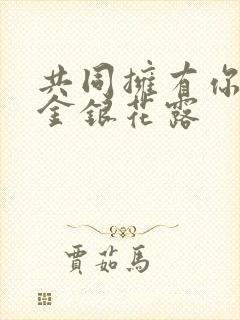 共同擁有你
金銀花露
賈茹馬